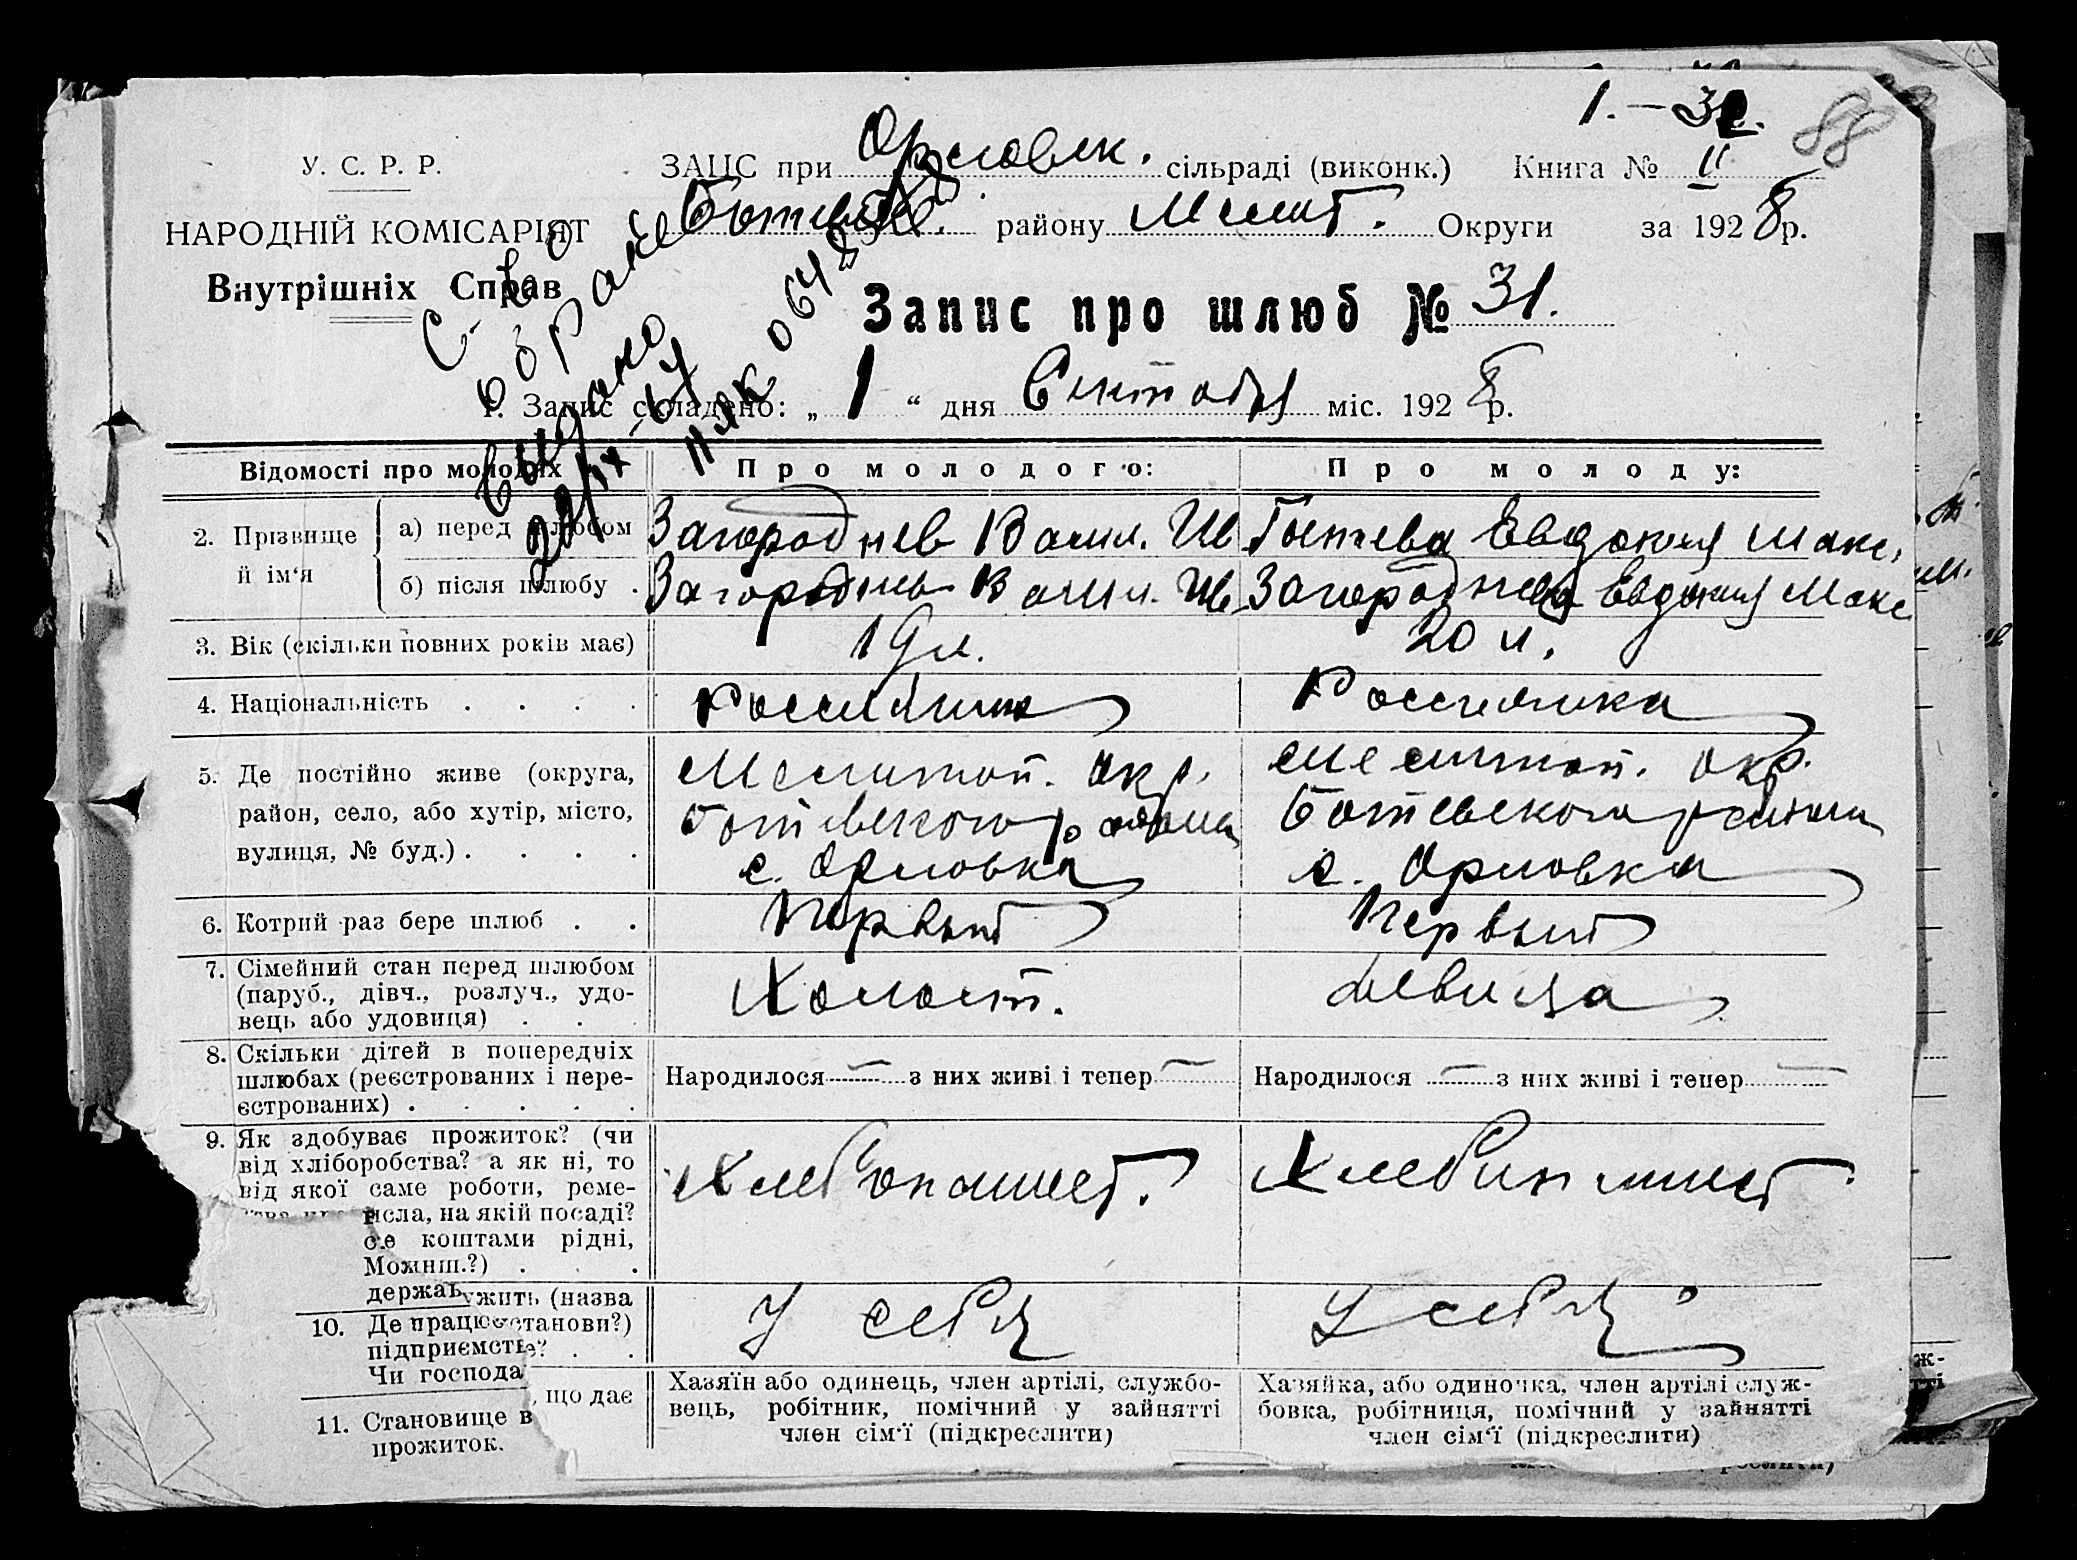 1.-31.
88
У. С. Р. Р.
ЗАЦС при Орловск. сільраді (виконк.) Книга № II
НАРОДНІЙ КОМІСАРІЯТ
Ботевск. району Мелит. Округи за 1928 р.
Внутрішніх Справ
Запис про шлюб № 31.
С-во
о браке
выдано
22/IX-64
II ЯК 0648
1. Запис складено: „ 1 “ дня Сентября міс. 1928 р.
Відомості про молодих
Про молодого:
Про молоду:
2. Прізвище й ім‘я
а) перед шлюбом
Загороднев Васил. Ив
Евдокия Макс.
б) після шлюбу .
Загороднев Васил. Ив
Загороднева Евдокия Макс
3. Вік (скільки повних років має)
19 л.
20 л.
4. Національність . . . .
Россиянин
Россиянка
5. Де постійно живе (округа,
район, село, або хутір, місто,
вулиця, № буд.) . . . .
Мелитоп. окр.
Ботевского района
с. Орловка
Мелитоп. окр.
Ботевского района
с. Орловка
6. Котрий раз бере шлюб . .
Первый
Первый
7. Сімейний стан перед шлюбом
(паруб., дівч., розлуч., удо-
вець або удовиця) . . .
Холост.
Девица
8. Скільки дітей в попередніх
шлюбах (реєстрованих і нере-
єстрованих) . . . . .
Народилося — з них живі і тепер —
Народилося — з них живі і тепер —
9. Як здобуває прожиток? (чи
від хліборобства? а як ні, то
від якої саме роботи, реме-
исла, на якій посаді?
коштами рідні,
Можнш.?) . . .
держав
Хлебопашест.
Хлебопашест.
10. Де працює
ужить (назва
станови?)
підприємств
Чи господа
У себя
У себя
11. Становище в
, що дає
прожиток.
Хазяїн або одинець, член артілі, службо-
вець, робітник, помічний у зайнятті
член сім‘ї (підкреслити)
Хазяйка, або одиночка, член артілі служ-
бовка, робітниця, помічний у зайнятті
член сім‘ї (підкреслити)